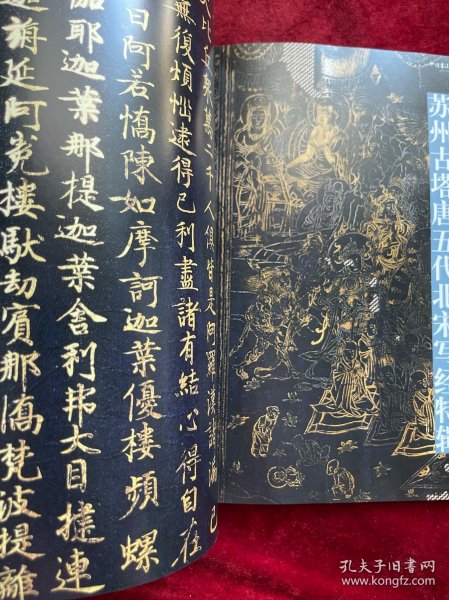 苏州古塔唐五代北宋写经特辑
比丘衆萬二千人俱皆是阿羅漢諸漏已
無復煩惱逮得己利盡諸有結心得自在
曰阿若憍陳如摩訶迦葉優樓頻螺
伽耶迦葉那提迦葉舍利弗大目揵連
迦旃延阿㝹樓馱劫賓那憍梵波提離
孔夫子旧书网
www.kongfz.com